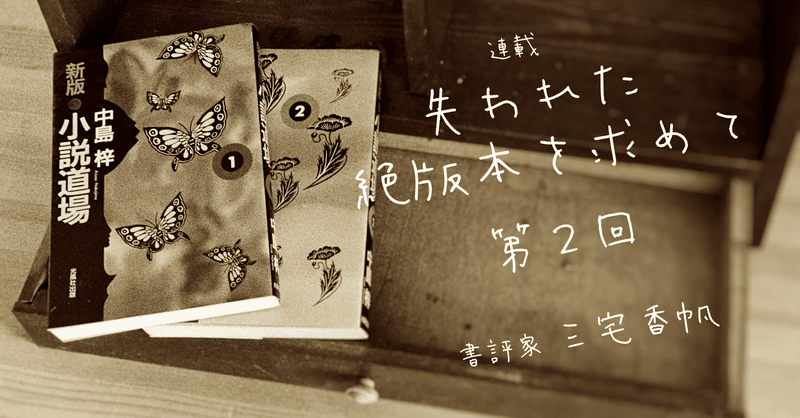 新版
中島 梓
小説道場
光風社出版
1
2
連載
失われた
絶版本を求めて
第2回
書評家 三宅香帆